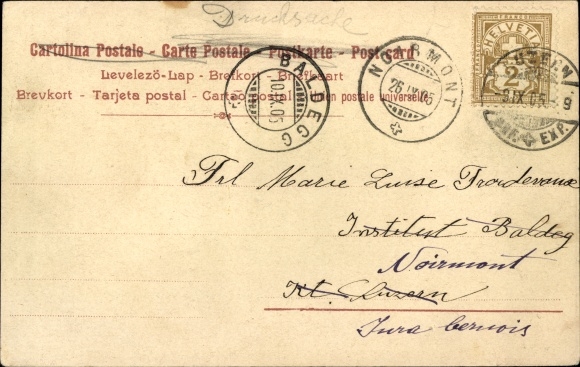 Drucksache
Cartolina Postale - Carte Postale - Postkarte - Postcard
Levelező-Lap - Brefkort - Briefkaart
Brevkort - Tarjeta postal - postale universelle
BALDEGG
IX.05
NOIRMONT
26.IX.05
HELVETIA
FRANCO
2
LUZERN
IX.05 - 9
EXP.
Frl Marie Luise Froidevaux
Institut Baldeg
Noirmont
Kt. Luzern
Jura bernois